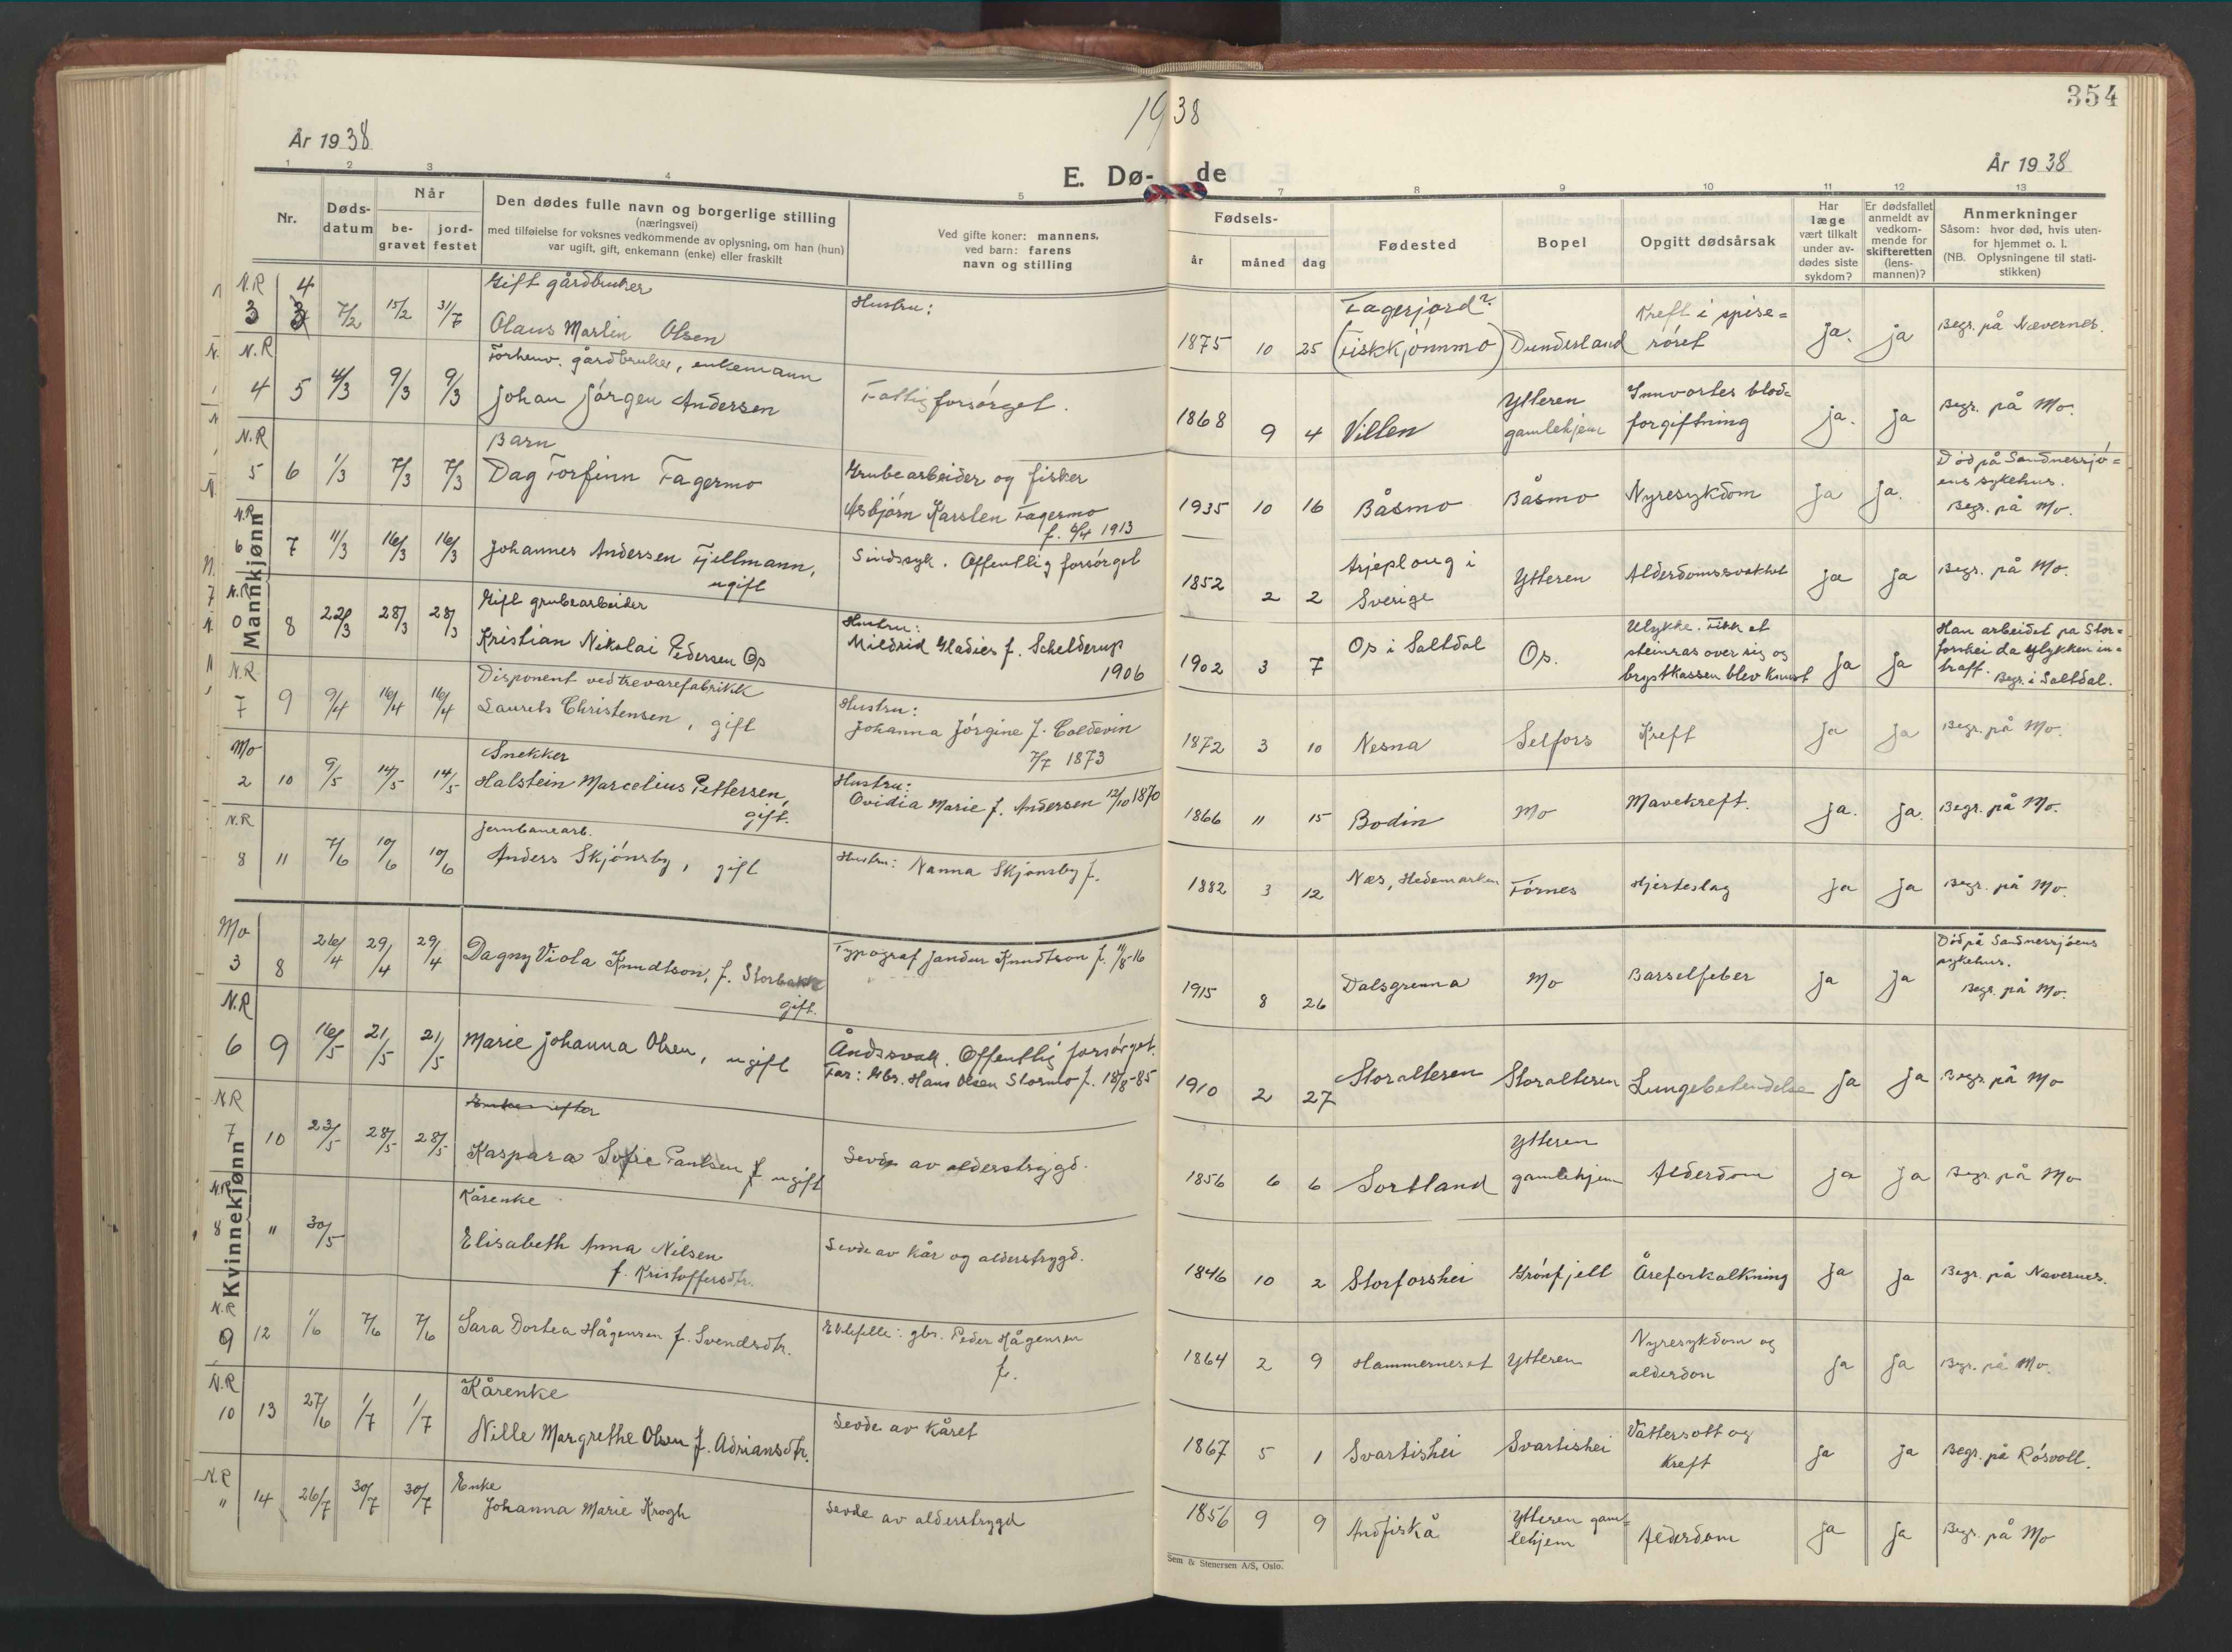 354
1938
År 1938
År 1938
E. Dø- de
1 2 3 4 5 7 8 9 10 11 12 13
Nr.
Døds-
datum
Når
be-
gravet
jord-
festet
Den dødes fulle navn og borgerlige stilling
(næringsvei)
med tilføielse for voksnes vedkommende av oplysning, om han (hun)
var ugift, gift, enkemann (enke) eller fraskilt
Ved gifte koner: mannens,
ved barn: farens
navn og stilling
Fødsels-
år måned dag
Fødested
Bopel
Opgitt dødsårsak
Har
læge
vært tilkalt
under av-
dødes siste
sykdom?
Er dødsfallet
anmeldt av
vedkom-
mende for
skifteretten
(lens-
mannen)?
Anmerkninger
Såsom: hvor død, hvis uten-
for hjemmet o. l.
(NB. Oplysningene til stati-
stikken)
Mannkjønn
N.R 4
3 3 7/2 15/2 31/7
Gift gårdbruker
Olaus Martin Olsen
Hustru:
1875 10 25
Fagerjord?
(Fiskkjønnmo)
Dunderland
Kreft i spise=
røret
ja. ja
Begr. på Nævernes.
N.R
4 5 4/3 9/3 9/3
Forhenv. gårdbruker, enkemann
Johan Jørgen Andersen
Fattigforsørget.
1868 9 4
Villen
Ytteren
gamlehjem
Innvortes blod=
forgiftning
ja. ja
Begr. på Mo.
N.R
5 6 1/3 7/3 7/3
Barn
Dag Torfinn Fagermo
Grubearbeider og fisker
Asbjørn Karsten Fagermo
1913
1935 10 16
Båsmo
Båsmo
Nyresykdom
ja ja.
Død på Sandnessjø=
ens sykehus.
Begr. på Mo.
N.R
6 7 11/3 16/3 16/3
Johannes Andersen Fjellmann,
ugift
Sindssyk. Offentlig forsørget
1852 2 2
Arjeploug i
Sverige
Ytteren
Alderdomssvakhet
ja ja
Begr. på Mo.
N.R
0 8 22/3 28/3 28/3
Gift grubearbeider
Kristian Nikolai Pedersen Os
Hustru:
Mildrid Gladies f. Schelderup
1906
1902 3 7
Os i Saltdal
Os.
Ulykke. Fikk et
steinras over sig og
brystkassen blev knust
ja ja
Han arbeidet på Stor=
forshei da ulykken in=
traff. Begr. i Saltdal.
N.R.
7 9 9/4 16/4 16/4
Disponent ved trevarefabrikk
Laurits Christensen, gift
Hustru:
Johanna Jørgine f. Coldevin
7/7 1873
1872 3 10
Nesna
Selfors
Kreft
ja ja
Begr. på Mo.
Mo
2 10 9/5 14/5 14/5
Snekker
Halstein Marcelius Pettersen,
gift.
Hustru:
Ovidia Marie f. Andersen 12/10 1870
1866 11 15
Bodin
Mo
Mavekreft.
ja. ja.
Begr. på Mo.
N.R
8 11 7/6 10/6 10/6
Jernbanearb.
Anders Skjønsby, gift
Hustru: Nanna Skjønsby f.
1882 3 12
Næs, Hedemarken
Førnes
Hjerteslag
ja ja
Begr. på Mo.
Kvinnekjønn
Mo
3 8 26/4 29/4 29/4
Dagny Viola Knudtson, f. Storbakk
gift.
Typograf Jandur Knudtson f. 11/8-16
1915 8 26
Dalsgrenna
Mo
Barselfeber
ja ja
Død på Sandnessjøens
sykehus.
Begr. på Mo.
N.R
6 9 16/5 21/5 21/5
Marie Johanna Olsen, ugift
Åndssvak. Offentlig forsørget.
Far: Gbr. Hans Olsen Stormo f. 18/8-85
1910 2 27
Storalteren
Storalteren
Lungebetendelse
ja ja
Begr. på Mo
N.R
7 10 23/5 28/5 28/5
Enke efter
Kaspara Sofie Paulsen f ugift
Levde av alderstrygd.
1856 6 6
Sortland
Ytteren
gamlehjem
Alderdom
ja ja
Begr. på Mo
N.R
8 11 30/5
Kårenke
Elisabeth Anna Nilsen
f. Kristoffersdtr.
Levde av kår og alderstrygd.
1846 10 2
Storforshei
Grønfjell
Åreforkalkning
ja ja
Begr. på Nævernes.
N.R
9 12 1/6 7/6 7/6
Sara Dortea Hågensen f. Svendsdtr.
Ektefelle: gbr. Peder Hågensen
f.
1864 2 9
Hammerneset
Ytteren
Nyresykdom og
alderdom
ja ja
Begr. på Mo.
N.R
10 13 27/6 1/7 1/7
Kårenke
Nille Margrethe Olsen f. Adriansdtr.
Levde av kåret
1867 5 1
Svartishei
Svartishei
Vattersott og
kreft
ja ja
Begr. på Røsvoll.
N.R
" 14 26/7 30/7 30/7
Enke
Johanna Marie Krogh
Levde av alderstrygd
1856 9 9
Andfiskå
Ytteren gam=
lehjem
Alderdom
ja ja
Begr. på Mo
Sem & Stenersen A/S, Oslo.